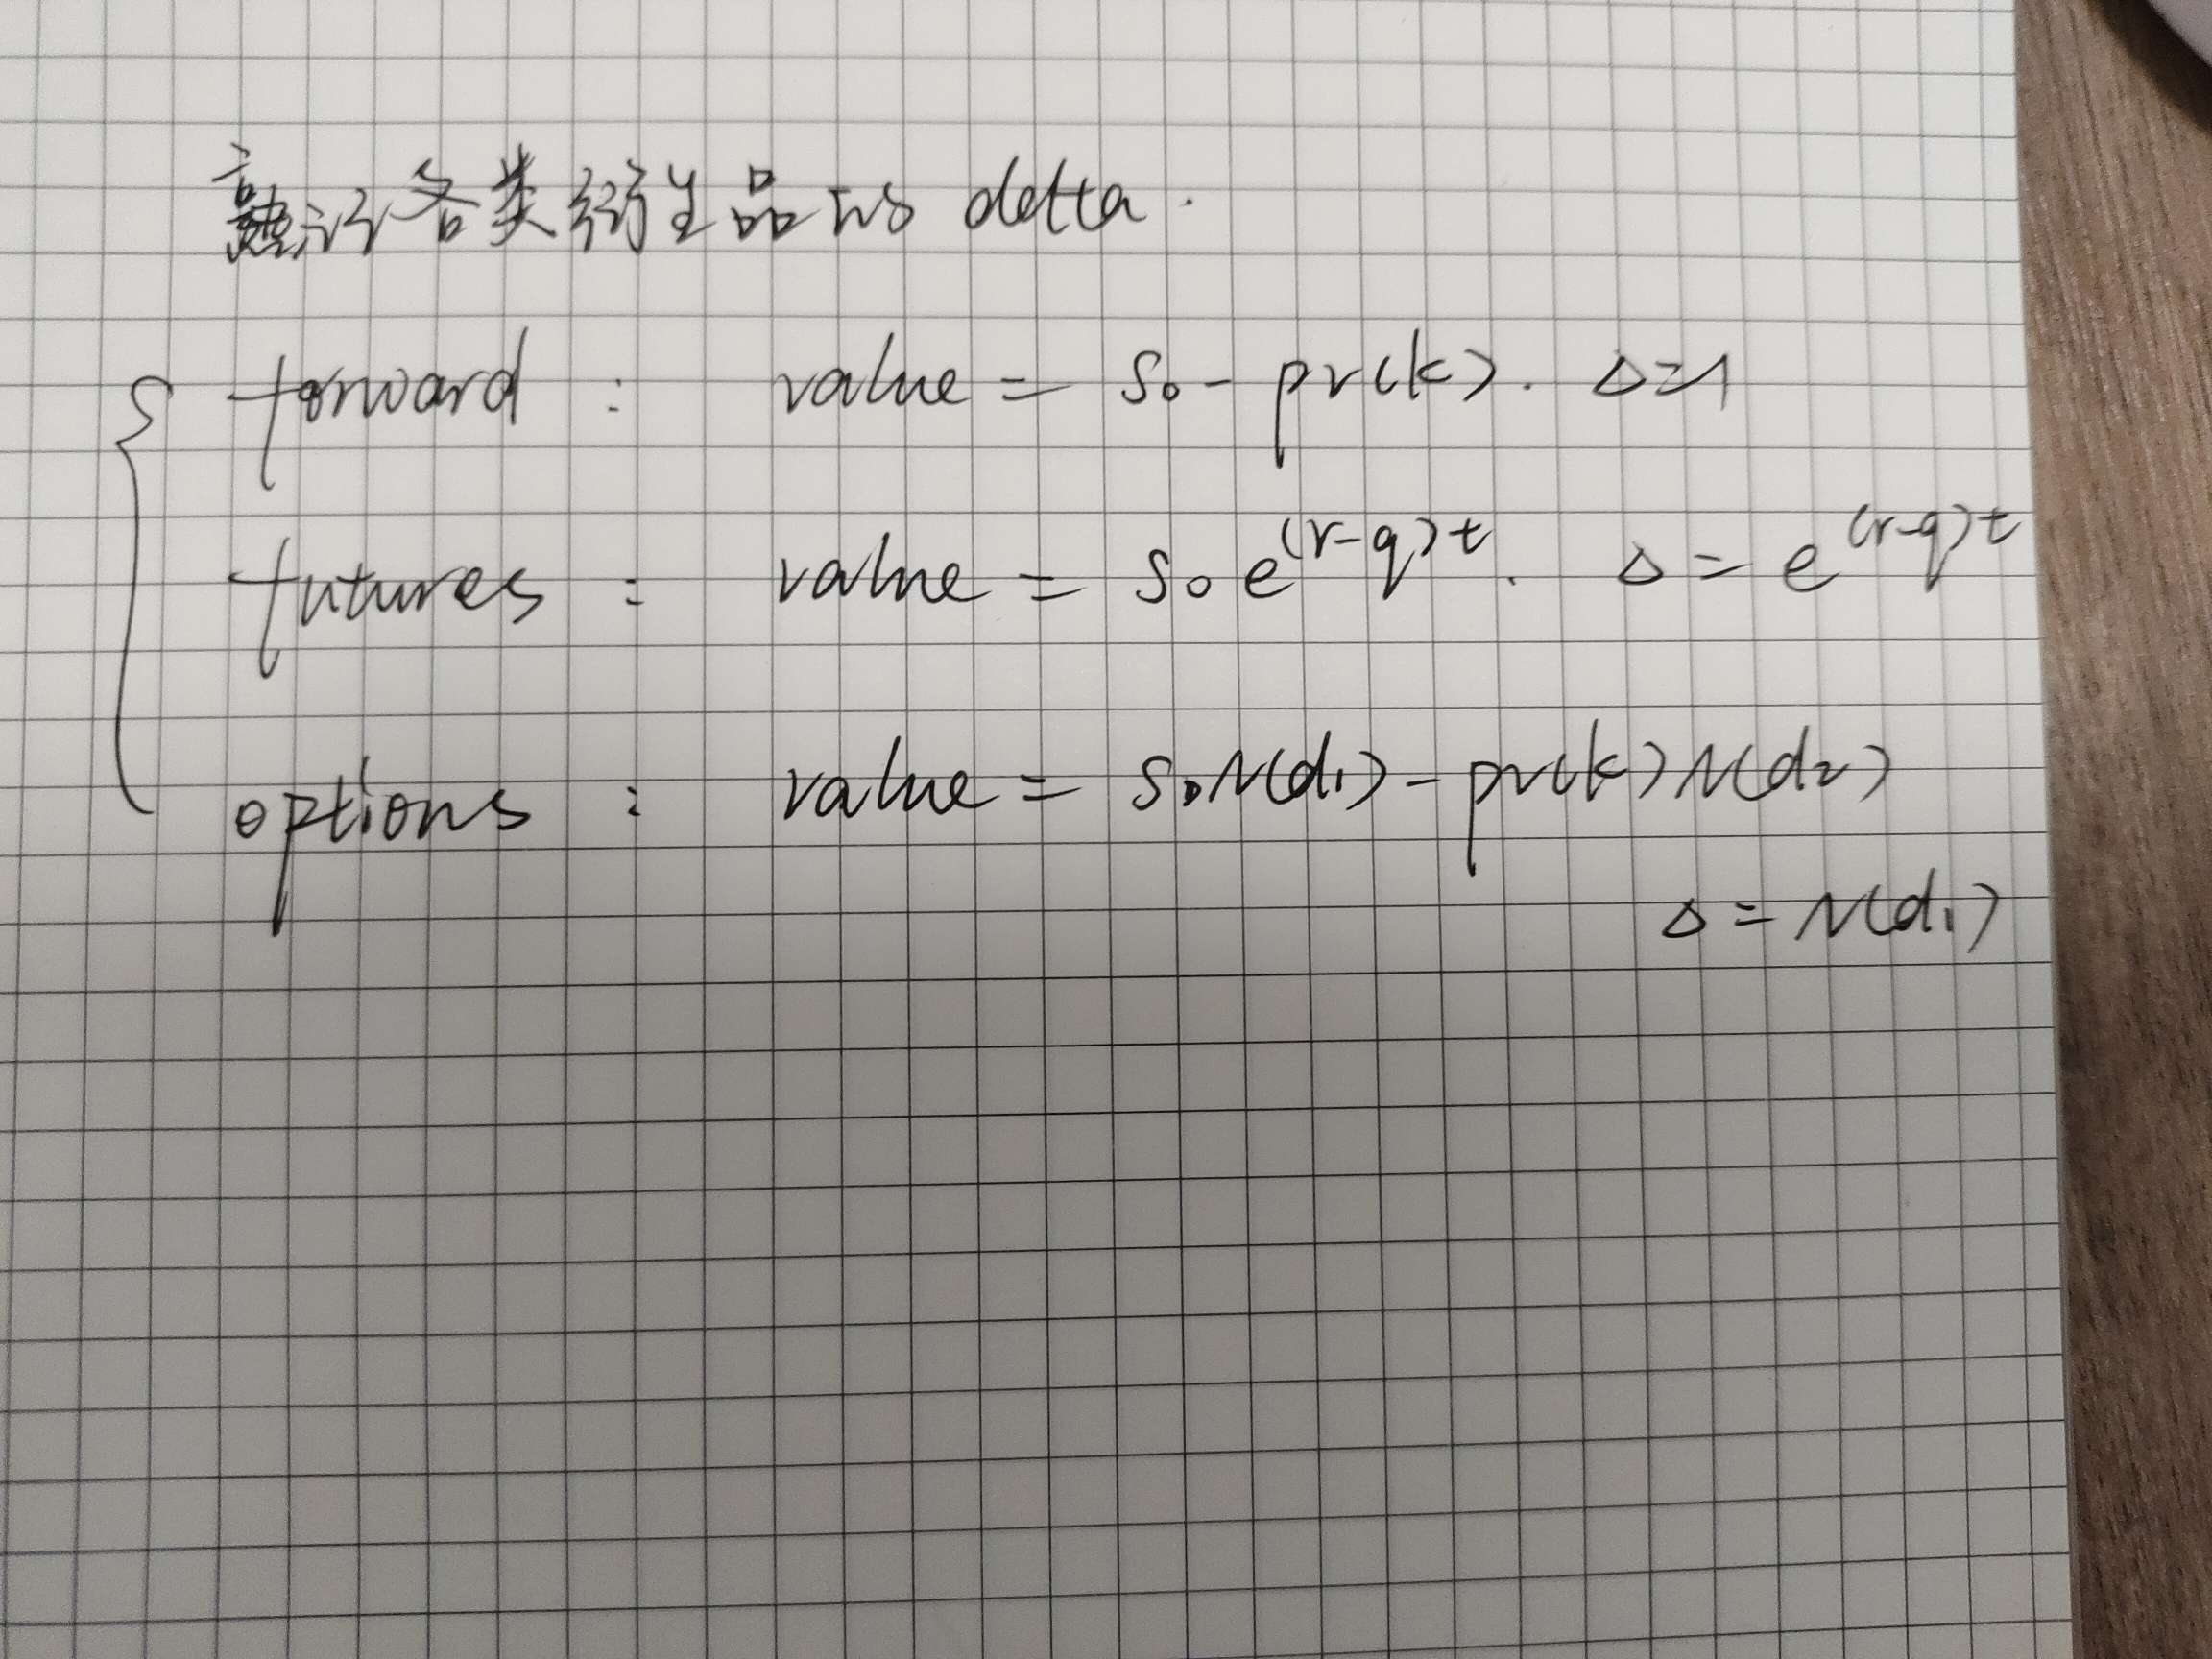 熟记各类衍生品的 delta.
forward : value = S₀ - pv(k). Δ=1
futures : value = S₀ e^(r-q)t. Δ = e^(r-q)t
options : value = S₀N(d₁) - pv(k)N(d₂)
Δ = N(d₁)